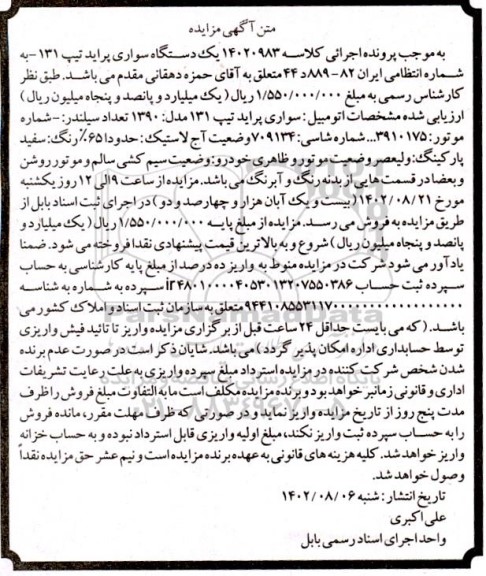 متن آگهی مزایده
به موجب پرونده اجرائی کلاسه ۱۴۰۲۰۹۸۳ یک دستگاه سواری پراید تیپ ۱۳۱ -به
شماره انتظامی ایران ۸۲- ۸۸۹د۴۴ متعلق به آقای حمزه دهقانی مقدم می باشد. طبق نظر
کارشناس رسمی به مبلغ ۱/۵۵۰/۰۰۰/۰۰۰ ریال ( یک میلیارد و پانصد و پنجاه میلیون ریال )
ارزیابی شده مشخصات اتومبیل : سواری پراید تیپ ۱۳۱ مدل: ۱۳۹۰ تعداد سیلندر: -شماره
موتور : ۳۹۱۰۱۷۵...شماره شاسی: ۷۰۹۱۳۴ وضعیت آج لاستیک : حدودا ۶۵٪ رنگ: سفید
پارکینگ: ولیعصر وضعیت موتور و ظاهری خودرو: وضعیت سیم کشی سالم و موتور روشن
و بعضا در قسمت هایی از بدنه رنگ و آبرنگ می باشد. مزایده از ساعت ۹ الی ۱۲ روز یکشنبه
مورخ ۱۴۰۲/۰۸/۲۱ (بیست و یک آبان هزار و چهارصد و دو) در اجرای ثبت اسناد بابل از
طریق مزایده به فروش می رسد. مزایده از مبلغ پایه ۱/۵۵۰/۰۰۰/۰۰۰ ریال ( یک میلیارد و
پانصد و پنجاه میلیون ریال ) شروع و به بالاترین قیمت پیشنهادی نقدا فروخته می شود. ضمنا
یادآور می شود شرکت در مزایده منوط به واریز ده درصد از مبلغ پایه کارشناسی به حساب
سپرده ثبت حساب ir۳۴۸۰۱۰۰۰۰۴۰۵۳۰۱۳۲۰۷۵۵۰۳۸۶ سپرده به شماره به شناسه
متعلق به سازمان ثبت اسناد و املاک کشور می
باشد. ( که می بایست حداقل ۲۴ ساعت قبل از برگزاری مزایده واریز تا تائید فیش واریزی
توسط حسابداری اداره امکان پذیر گردد) می باشد. شایان ذکر است در صورت عدم برنده
شدن شخص شرکت کننده در مزایده استرداد مبلغ سپرده واریزی به علت رعایت تشریفات
اداری و قانونی زمانبر خواهد بود و برنده مزایده مکلف است ما به التفاوت مبلغ فروش را ظرف
مدت پنج روز از تاریخ مزایده واریز نماید و در صورتی که ظرف مهلت مقرر، مانده فروش
را به حساب سپرده ثبت واریز نکند، مبلغ اولیه واریزی قابل استرداد نبوده و به حساب خزانه
واریز خواهد شد. کلیه هزینه های قانونی به عهده برنده مزایده است و نیم عشر حق مزایده نقداً
وصول خواهد شد.
تاریخ انتشار : شنبه ۱۴۰۲/۰۸/۰۶
علی اکبری
واحد اجرای اسناد رسمی بابل